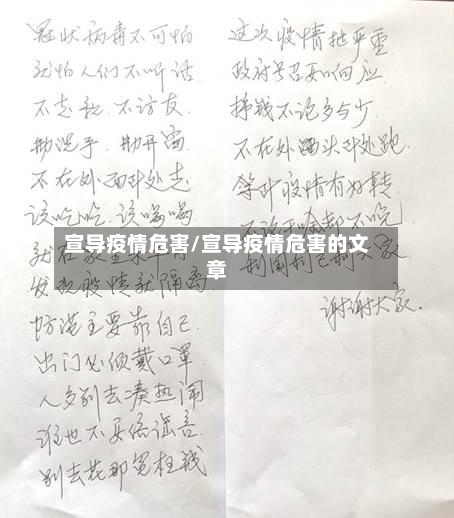 冠状病毒不可怕
就怕人们不听话.
不走亲.不访友.
勤洗手.勤开窗
不在外面到处走
该吃吃.该喝喝
就在家里
发现疫情就隔离
防范主要靠自己.
出门必须戴口罩.
人多别去凑热闹
谁也不要信谣言.
别去花那冤枉钱
这次疫情挺严重.
政府号召要响应.
挣钱不论多与少.
不在外头到处跑.
等到疫情有好转.
利国利己利大家.
谢谢大家.
宣导疫情危害/宣导疫情危害的文
章